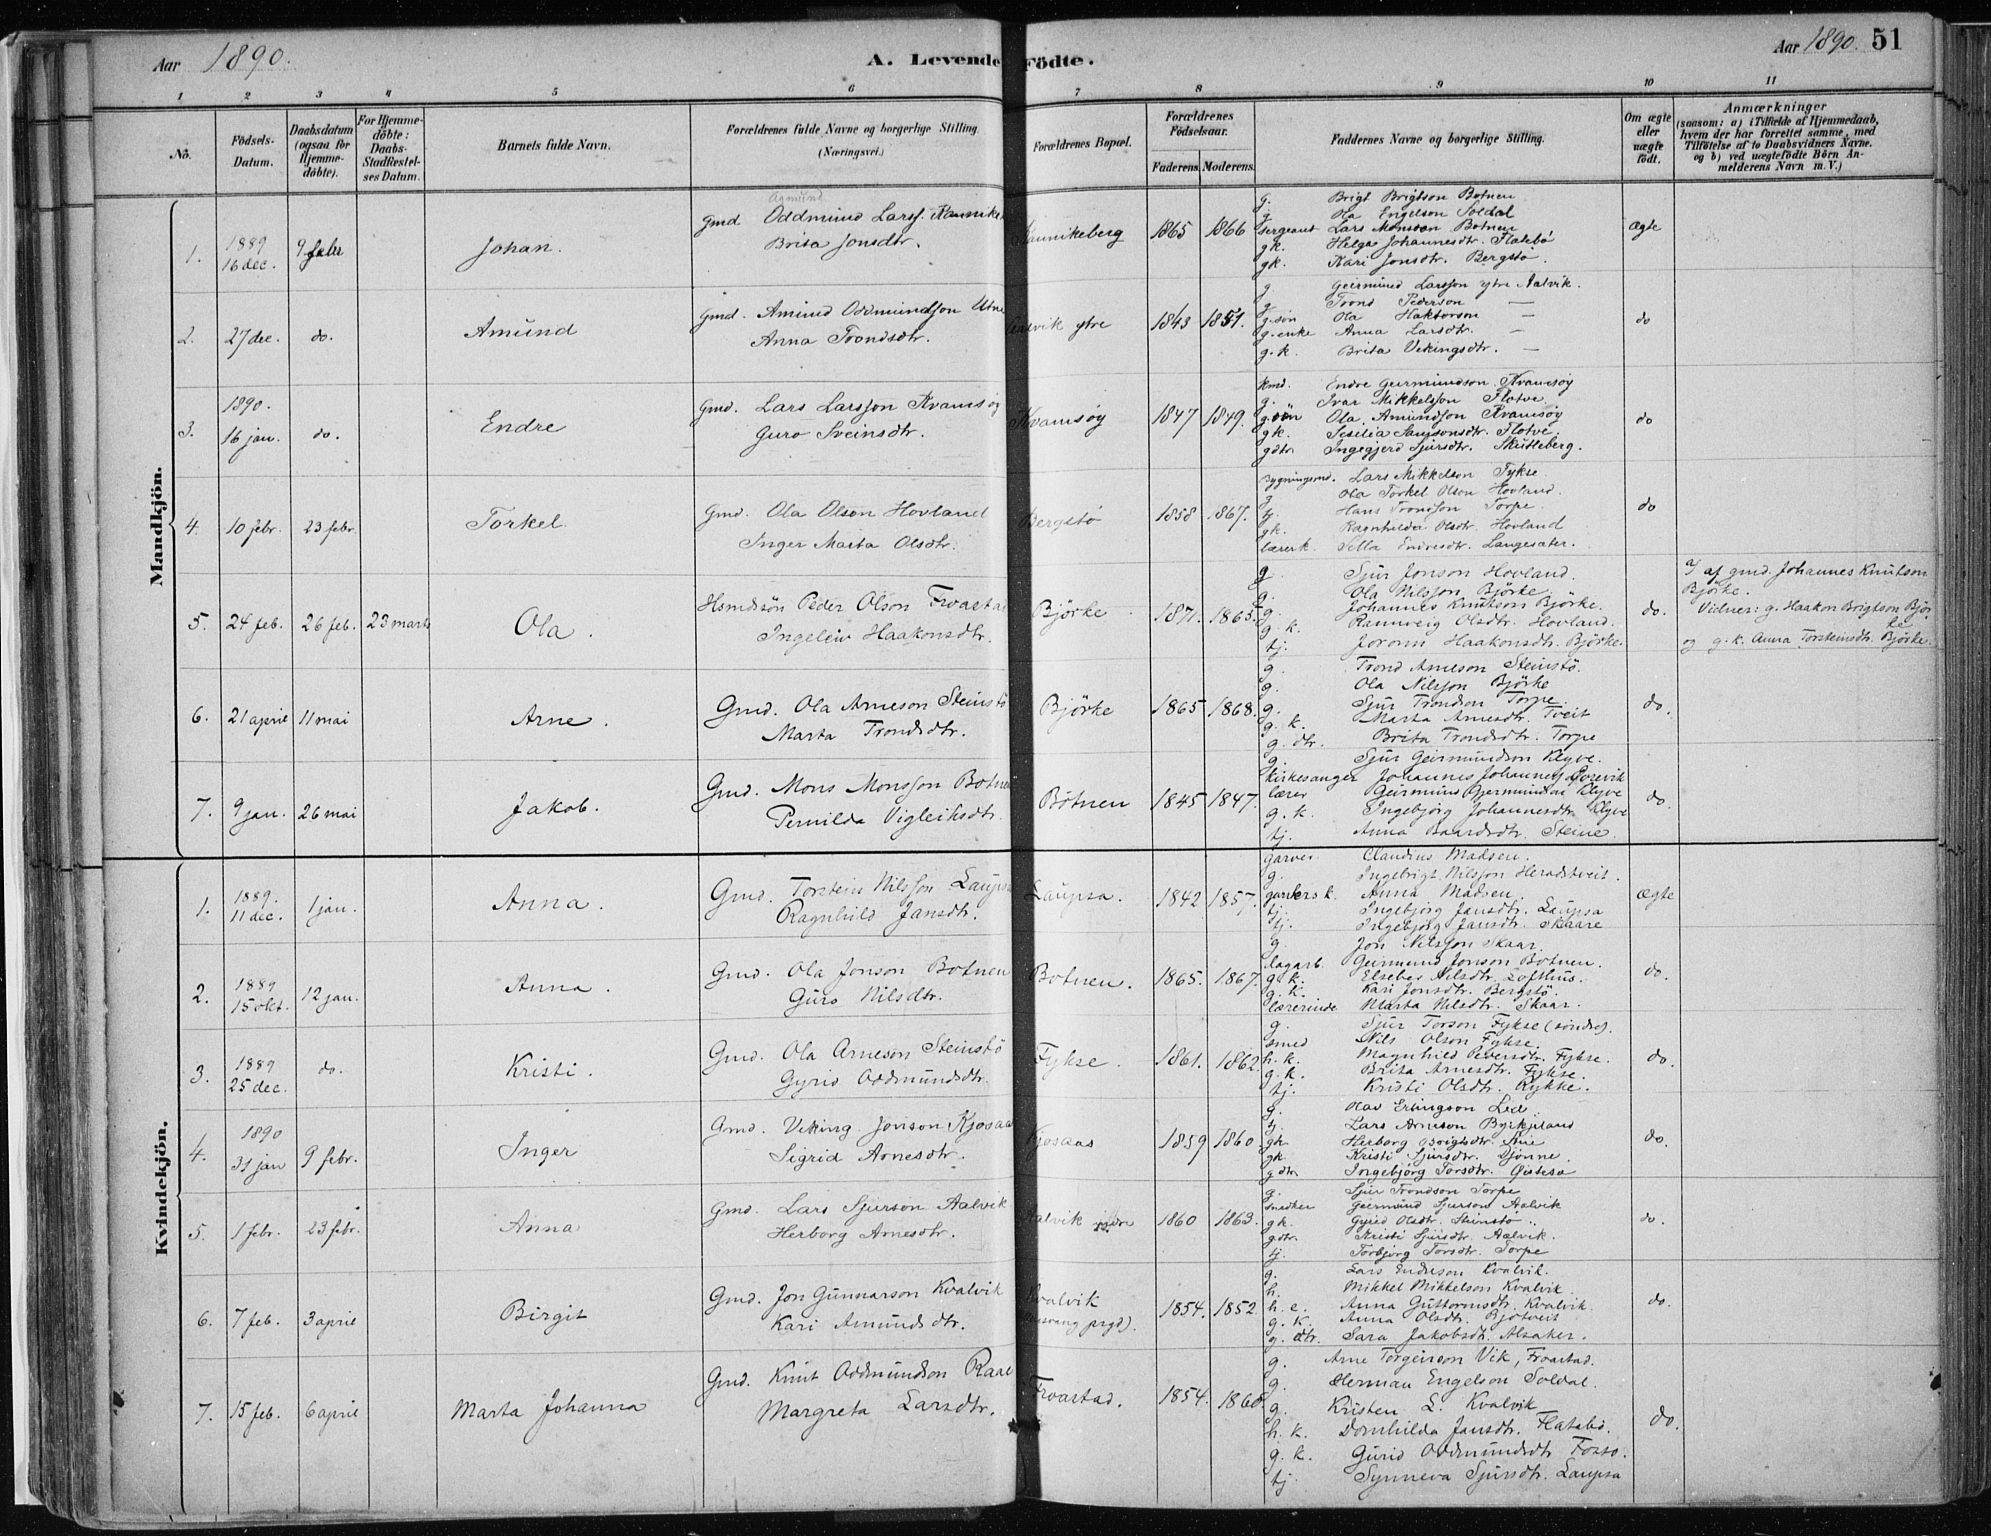 Aar 1890. A. Levende Födte. Aar 1890. 51
1 2 3 4 5 6 7 8 9 10 11
No.
Födsels-Datum.
Daabsdatum (ogsaa for Hjemme-döbte).
For Hjemme-döbte: Daabs-Stadfestel-ses Datum.
Barnets fulde Navn.
Forældrenes fulde Navne og borgerlige Stilling.
(Næringsvei.)
Forældrenes Bopæl.
Forældrenes Födselsaar.
Faderens. Moderens.
Faddernes Navne og borgerlige Stilling.
Om ægte eller uægte födt.
Anmærkninger
(saasom: a) i Tilfælde af Hjemmedaab, hvem der har forrettet samme, med Tilföielse af to Daabsvidners Navne. og b) ved uægtefödte Börn An-melderens Navn m. V.)
Mandkjön.
1. 1889 16 dec. 9 febr Johan. Gmd Oddmund Larss. Kannike
Brita Jonsdtr. Kannikeberg 1865 1866 ægte
g. Brigt Brigtson Botnen
g. Ola Engelson Soldal
sergeant Lars Monsson Botnen
gk. Helga Johannesdtr. Flatebö
gk. Kari Jonsdtr. Bergstö.
2. 27 dec. do. Amund Gmd. Amund Oddmundson Utne
Anna Trondsdtr. Aalvik ytre 1843 1851. do
g. Geirmund Larsson ytre Aalvik.
g. Trond Pederson —
g.sön Ola Haktorson —
g.enke Anna Larsdtr. —
g.k. Brita Vikingsdtr. —
3. 1890. 16 jan. do. Endre Gmd. Lars Larsson Kvamsöy
Guro Sveinsdtr. Kvamsöy 1847 1849. do
kmd. Endre Geirmundson Kvamsöy
g. Ivar Mikkelsson Flotve
g.sön Ola Amundson Kvamsöy
gk. Sesilia Samsonsdtr. Flotve.
gdtr Ingegjerd Sjursdtr. Skutleberg.
4. 10 febr. 23 febr. Torkel Gmd. Ola Olson Hovland
Inger Marta Olsdtr. Bergstö 1858 1867. do
bygningsmd. Lars Mikkelson Fykse
g. Ola Torkel Olson Hovland.
tj. Hans Trondson Torpe
gk. Ragnhilda Olsdtr. Hovland
lærerk. Sella Endresdtr. Langesæter.
5. 24 feb. 26 feb. 23 marts Ola. Hsmdsön Peder Olson Froastad
Ingeleiv Haakonsdtr. Björke 1871. 1865. do.
g. Sjur Jonson Hovland.
g. Ola Nilsson Björke.
g. Johannes Knutson Björke.
g. k. Rannveig Olsdtr. Hovland.
tj. Joronn Haakonsdtr. Björke.
a/ af gmd. Johannes Knutson
Björke.
Vidner: g. Haakon Brigtson Björ
ke
og g.k. Anna Torsteinsdtr. Björke.
6. 21 april 11 mai Arne. Gmd. Ola Arneson Steinstö
Marta Trondsdtr. Björke 1865 1868. do.
g. Trond Arneson Steinstö.
g. Ola Nilsson Björke
g. Sjur Trondson Torpe
g. k. Marta Arnesdtr. Tveit
g. dtr. Brita Trondsdtr. Torpe
7. 9 jan. 26 mai Jakob. Gmd. Mons Monsson Botnen
Pernilda Vigleiksdtr. Botnen 1845 1847. do.
g. Sjur Geirmundson Klyve.
kirkesanger Johannes Johanness Övrevik
lærer Geirmund Geirmundson Klyve
g. k. Ingebjörg Johannesdtr Klyve
tj. Anna Baardsdtr. Steine.
Kvindekjön.
1. 1889. 11 dec. 1 jan. Anna. Gmd. Torstein Nilsson Laupsa
Ragnhild Jansdtr. Laupsa. 1842 1857. ægte
garver Claudius Madsen.
g. Ingebrigt Nilsson Heradstveit.
garvers k. Anna Madsen
tj. Ingebjörg Jansdtr. Laupsa
tj. Ingebjörg Jansdtr. Skaare
2. 1889 15 okt. 12 jan. Anna. Gmd. Ola Jonson Botnen
Guro Nilsdtr. Botnen. 1865. 1867. do.
g. Jon Nilsson Skaar.
dagarb. Geirmund Jonson Botnen.
g.k. Elsebes Nilsdtr. Lofthus.
g.k. Kari Jonsdtr. Bergstö.
lærerinde Marta Nilsdtr. Skaar.
3. 1889 25 dec. do. Kristi. Gmd. Ola Arneson Steinstö
Gyrid Oddmundsdtr. Fykse. 1861. 1862. do.
g. Sjur Torson Fykse (söndre).
smed Nils Olson Fykse.
h.k. Magnhild Pedersdtr. Fykse.
g.k. Brita Arnesdtr. Fykse.
tj. Kristi Olsdtr. Rykke.
4. 1890 31 jan 9 febr. Inger Gmd. Viking Jonson Kjosaas
Sigrid Arnesdtr. Kjosaas 1859 1860. do.
g. Olav Erlingson Lid.
tj. Lars Arneson Byrkjeland
gk Herborg Brigtsdtr.
gk Kristi Sjursdtr. Djönne.
gdtr Ingebjörg Torsdtr. Östese
5. 1 febr. 23 febr. Anna Gmd. Lars Sjurson Aalvik
Herborg Arnesdtr. Aalvik indre 1860 1863. do.
g. Sjur Trondson Torpe
snedker Geirmund Sjurson Aalvik
gk. Gyrid Olsdtr. Steinstö
gdtr. Kristi Sjursdtr. Aalvik.
tj. Torbjörg Torsdtr. Torpe
6. 7 feb. 3 april Birgit Gmd. Jon Gunnarson Kvalvik
Kari Amundsdtr. Kvalvik
(Ullensvang prgd). 1854. 1852. do.
g. Lars Endreson Kvalvik.
h. Mikkel Mikkelson Kvalvik
h. e. Anna Guttormsdtr. Kvalvik.
g. k. Anna Olsdtr. Bjötveit
g. dtr. Sara Jakobsdtr. Alsaker.
7. 15 feb. 6 april Marta Johanna Gmd. Knut Oddmundson Raae
Margreta Larsdtr. Froastad. 1854. 1860. do.
g. Arne Torgeirson Vik, Froastad.
g. Herman Engelson Soldal.
g. Kristen L. Kvalvik
h. k. Domhilda Jansdtr. Flatebö.
g. k. Gurid Oddmundsdtr Fosso.
tj. Synneva Sjursdtr. Laupsa